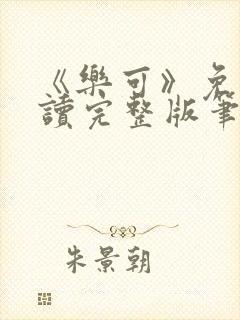 《樂可》免
讀完整版筆
朱景朝